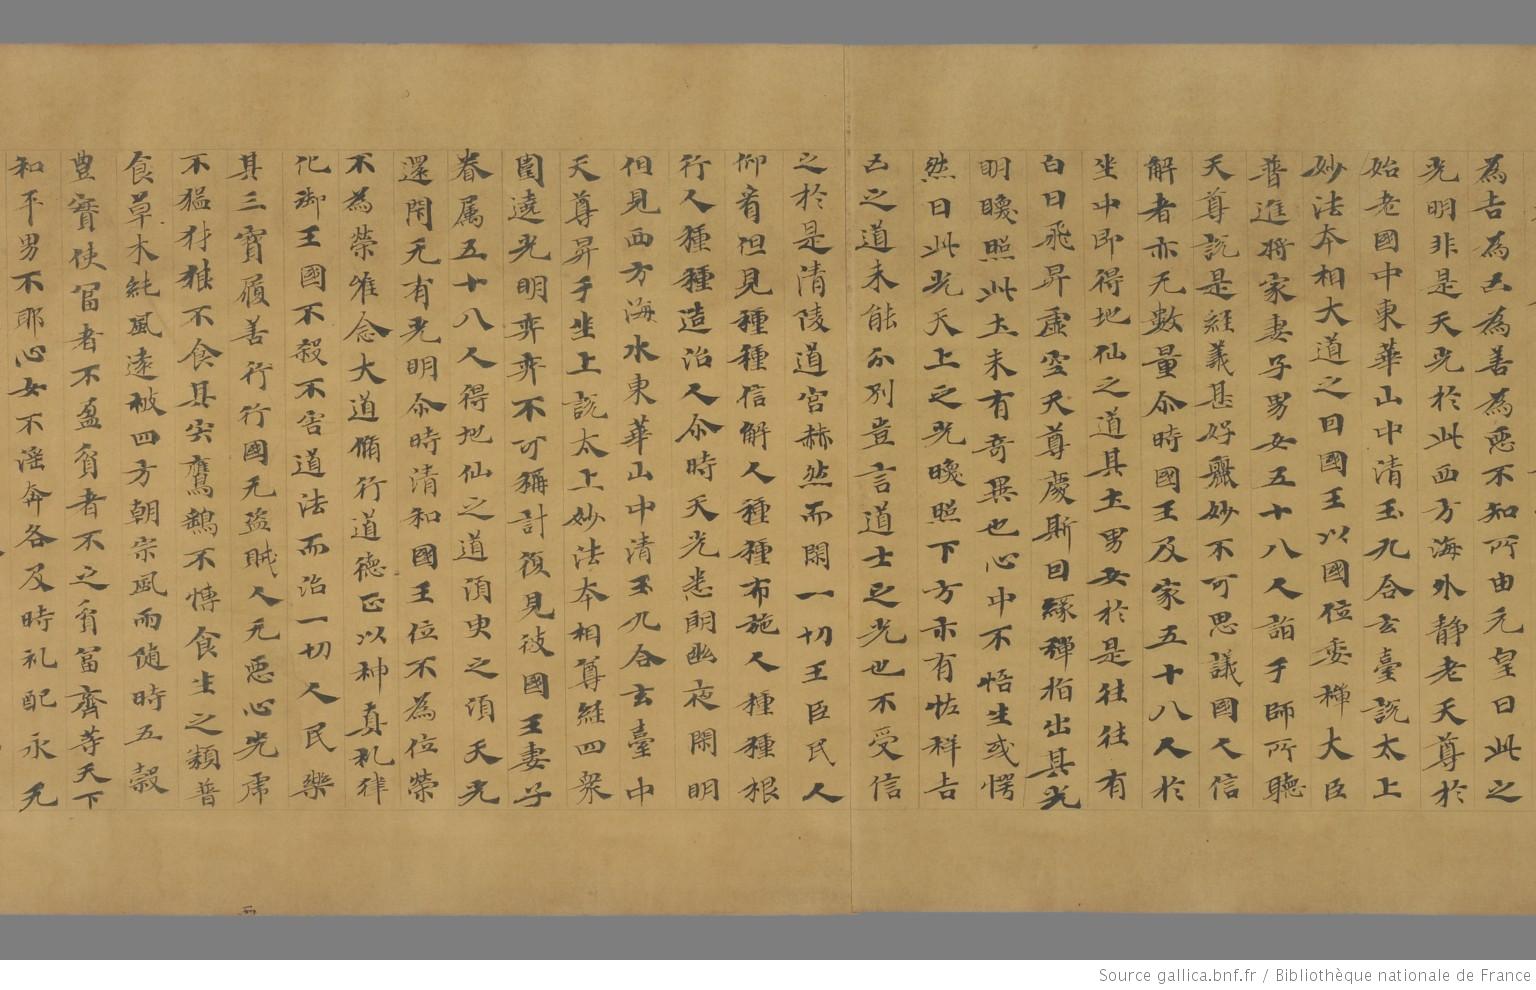 為吉為凶為善為惡不知所由元皇曰此之
光明非是天光於此西方海外靜老天尊於
始老國中東華山中清玉九合玄臺說太上
妙法本相大道之曰國王以國位委禪大臣
普進將家妻子男女五十八人詣于師所聽
天尊說是経義甚好麤妙不可思議國人信
解者亦无數量尒時國王及家五十八人於
坐中即得地仙之道具土男女於是往往有
白日飛昇虛空天尊慶斯曰緣禪指出其光
明曖照此土未有奇異也心中不悟生或愕
然曰此光天上之光曖照下方亦有怪祥吉
凶之道未能分別豈言道士之光也不受信
之於是清陵道宮赫然而開一切王臣民人
仰看但見種種信解人種種布施人種種根
行人種種造治人尒時天光悉朗幽夜開明
但見西方海水東華山中清玉九合玄臺中
天尊昇于坐上說太上妙法本相尊経四衆
圍遶光明弈弈不可稱計復見彼國王妻子
眷属五十八人得地仙之道湏臾之湏天光
還閇无有光明尒時清和國王位不為位榮
不為榮唯念大道脩行道德正以神真礼律
化御王國不殺不害道法而治一切人民樂
其三寶履善行行國无盜賊人无惡心光虎
不猛犲狼不食具宍鷹鷂不慱食生之類普
食草木純風遠被四方朝宗風雨随時五穀
豊實使冨者不盈貧者不乏貧冨齊等天下
和平男不耶心女不滛奔各及時礼配永无
Source gallica.bnf.fr / Bibliothèque nationale de France